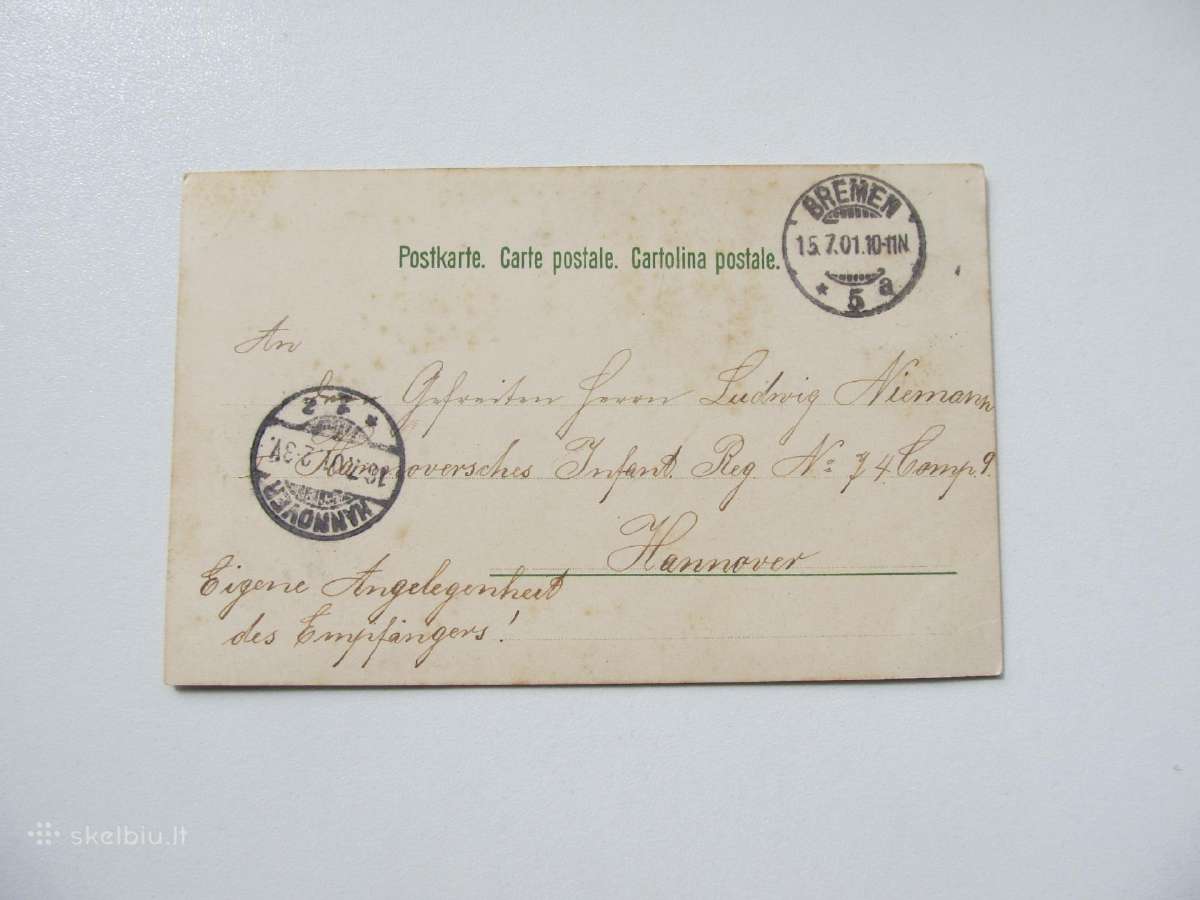 BREMEN
15.7.01.10-11N.
* 5 a
Postkarte. Carte postale. Cartolina postale.
An
Gefreiten Herrn Ludwig Niemann
Hannoversches Infant. Reg. No 74 Comp. 9.
Hannover
HANNOVER
16.7.01. 2-3V.
* 2 z
Eigene Angelegenheit
des Empfängers!
skelbiu.lt